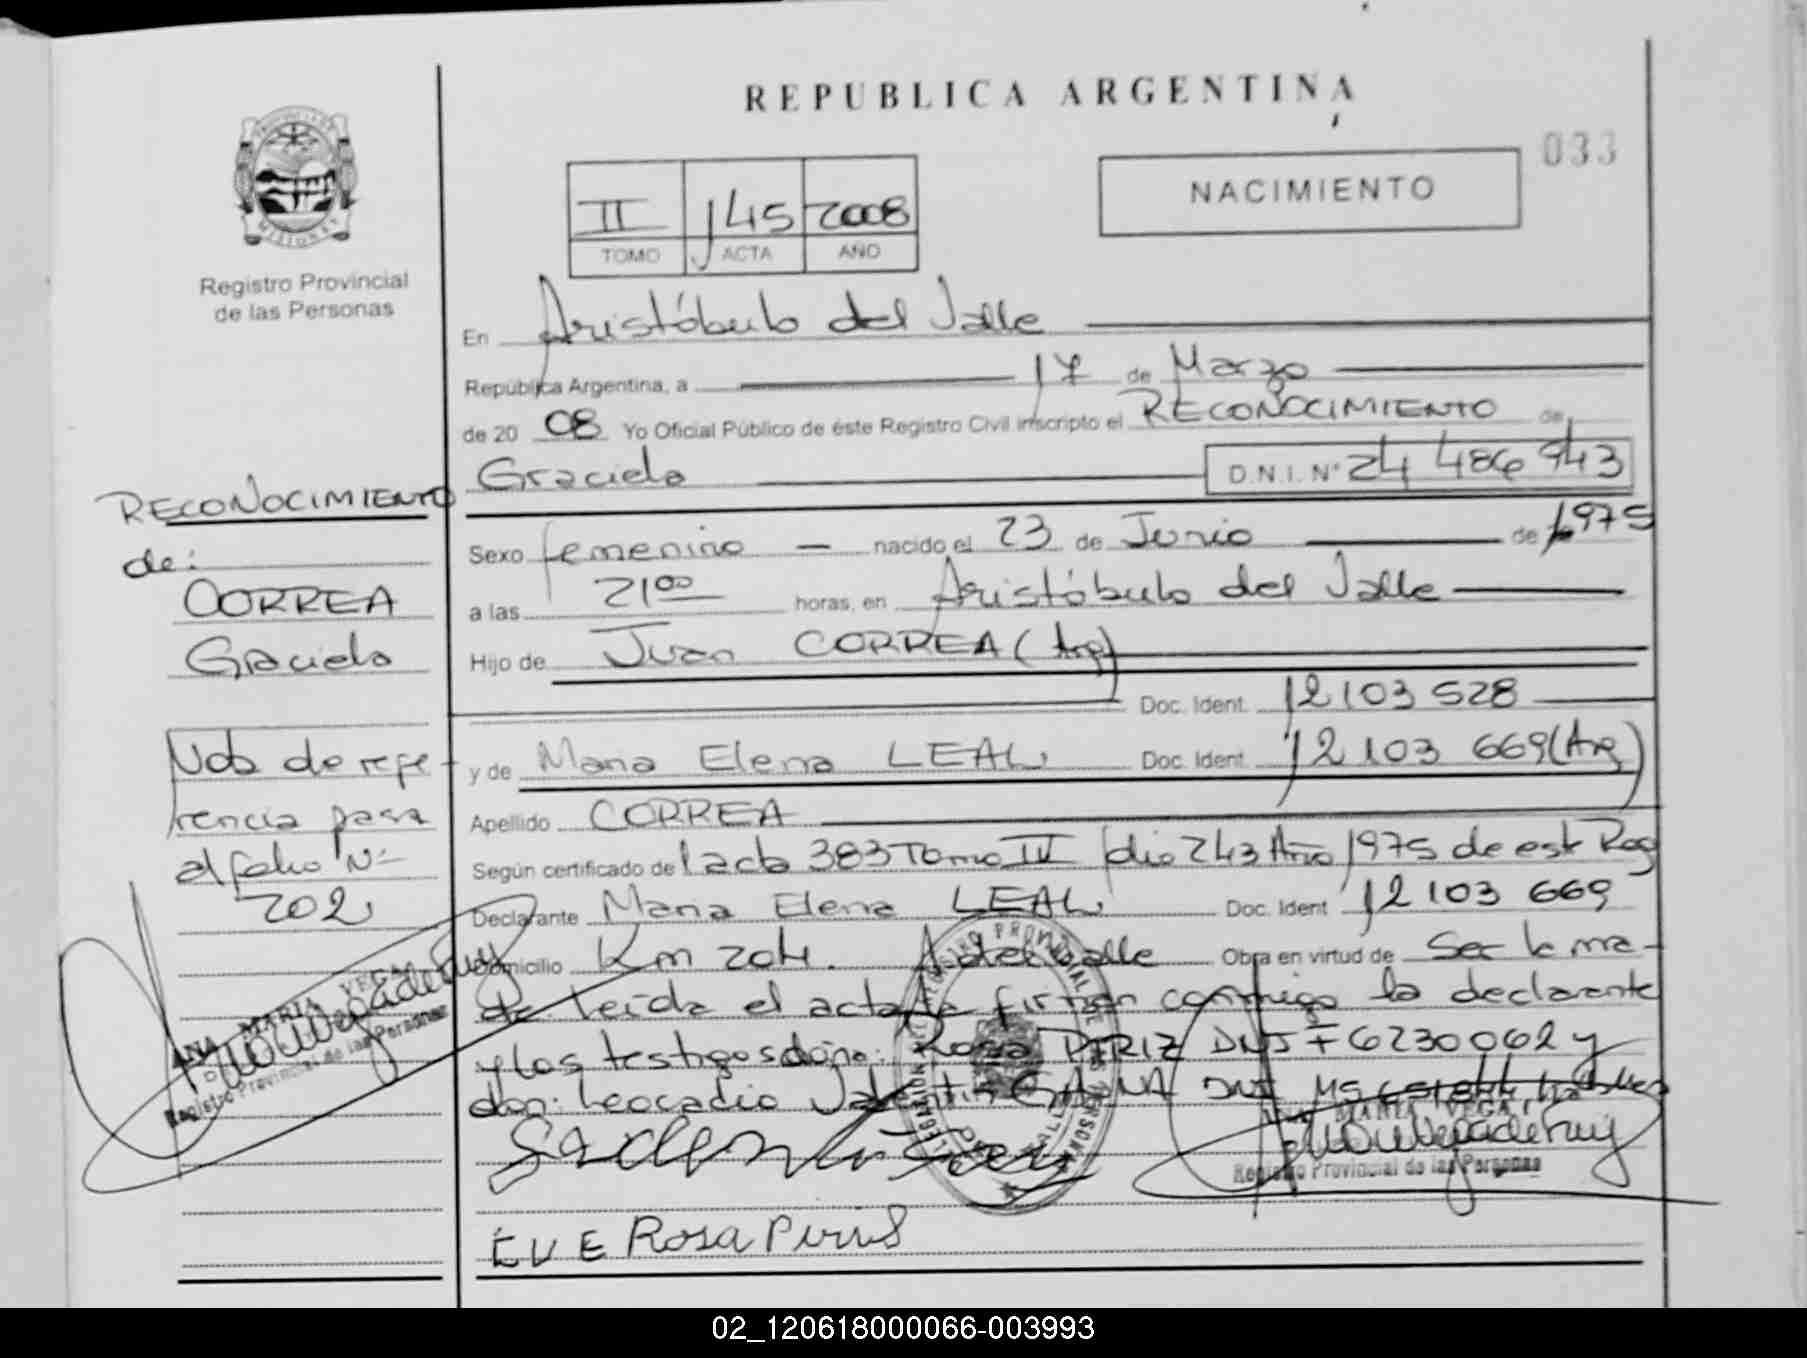 REPUBLICA ARGENTINA
033
PROVINCIA DE
MISIONES
Registro Provincial
de las Personas
II 145 2008
TOMO ACTA AÑO
NACIMIENTO
En Aristóbulo del Valle
República Argentina, a 17 de Marzo
de 20 08 Yo Oficial Público de éste Registro Civil inscripto el RECONOCIMIENTO de
Graciela D.N.I. N° 24 486 943
Sexo femenino — nacido el 23 de Junio de 1975
a las 2100 horas, en Aristóbulo del Valle
Hijo de Juan CORREA (Arg)
Doc. Ident. 12 103 528
y de Maria Elena LEAL Doc. Ident. 12 103 669 (Arg)
Apellido CORREA
Según certificado de l acta 383 Tomo IV folio 243 Año 1975 de este Reg
Declarante Maria Elena LEAL Doc. Ident 12 103 669
Domicilio Km 204. A del Valle Obra en virtud de Ser la ma-
dre leida el acta la firman conmigo la declarante
y los testigos doña: Rosa PIRIZ DNI F 6230062 y
don: Leocadio Valentin DNI
ANA MARIA VEGA
Registro Provincial de las Personas
EVE Rosa Piris
RECONOCIMIENTO
de:
CORREA
Graciela
Nota de refe-
rencia pasa
al folio N°
202
ANA MARIA VEGA
Registro Provincial de las Personas
02_120618000066-003993